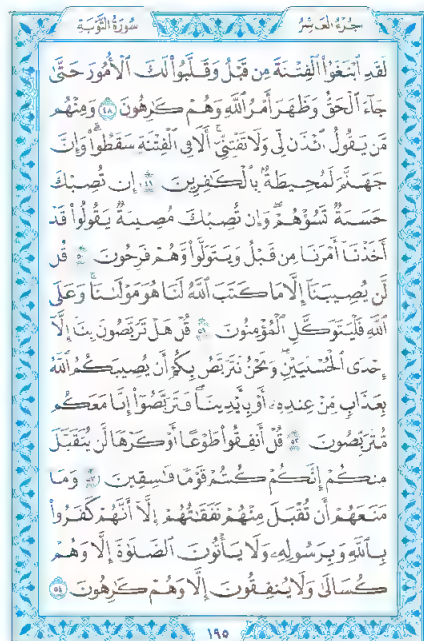 سُورَةُ التَّوْبَةِ
جُزْءُ الْعَاشِرُ
لَقَدِ ٱبْتَغَوُا۟ ٱلْفِتْنَةَ مِن قَبْلُ وَقَلَّبُوا۟ لَكَ ٱلْأُمُورَ حَتَّىٰ
جَآءَ ٱلْحَقُّ وَظَهَرَ أَمْرُ ٱللَّهِ وَهُمْ كَـٰرِهُونَ ٤٨ وَمِنْهُم
مَّن يَقُولُ ٱئْذَن لِّى وَلَا تَفْتِنِّىٓ ۚ أَلَا فِى ٱلْفِتْنَةِ سَقَطُوا۟ ۗ وَإِنَّ
جَهَنَّمَ لَمُحِيطَةٌۢ بِٱلْكَـٰفِرِينَ ٤٩ إِن تُصِبْكَ
حَسَنَةٌ تَسُؤْهُمْ ۖ وَإِن تُصِبْكَ مُصِيبَةٌ يَقُولُوا۟ قَدْ
أَخَذْنَآ أَمْرَنَا مِن قَبْلُ وَيَتَوَلَّوا۟ وَّهُمْ فَرِحُونَ ٥٠ قُل
لَّن يُصِيبَنَآ إِلَّا مَا كَتَبَ ٱللَّهُ لَنَا هُوَ مَوْلَىٰنَا ۚ وَعَلَى
ٱللَّهِ فَلْيَتَوَكَّلِ ٱلْمُؤْمِنُونَ ٥١ قُلْ هَلْ تَرَبَّصُونَ بِنَآ إِلَّآ
إِحْدَى ٱلْحُسْنَيَيْنِ ۖ وَنَحْنُ نَتَرَبَّصُ بِكُمْ أَن يُصِيبَكُمُ ٱللَّهُ
بِعَذَابٍ مِّنْ عِندِهِۦٓ أَوْ بِأَيْدِينَا ۖ فَتَرَبَّصُوٓا۟ إِنَّا مَعَكُم
مُّتَرَبِّصُونَ ٥٢ قُلْ أَنفِقُوا۟ طَوْعًا أَوْ كَرْهًا لَّن يُتَقَبَّلَ
مِنكُمْ ۖ إِنَّكُمْ كُنتُمْ قَوْمًا فَـٰسِقِينَ ٥٣ وَمَا
مَنَعَهُمْ أَن تُقْبَلَ مِنْهُمْ نَفَقَـٰتُهُمْ إِلَّآ أَنَّهُمْ كَفَرُوا۟
بِٱللَّهِ وَبِرَسُولِهِۦ وَلَا يَأْتُونَ ٱلصَّلَوٰةَ إِلَّا وَهُمْ
كُسَالَىٰ وَلَا يُنفِقُونَ إِلَّا وَهُمْ كَـٰرِهُونَ ٥٤
١٩٥